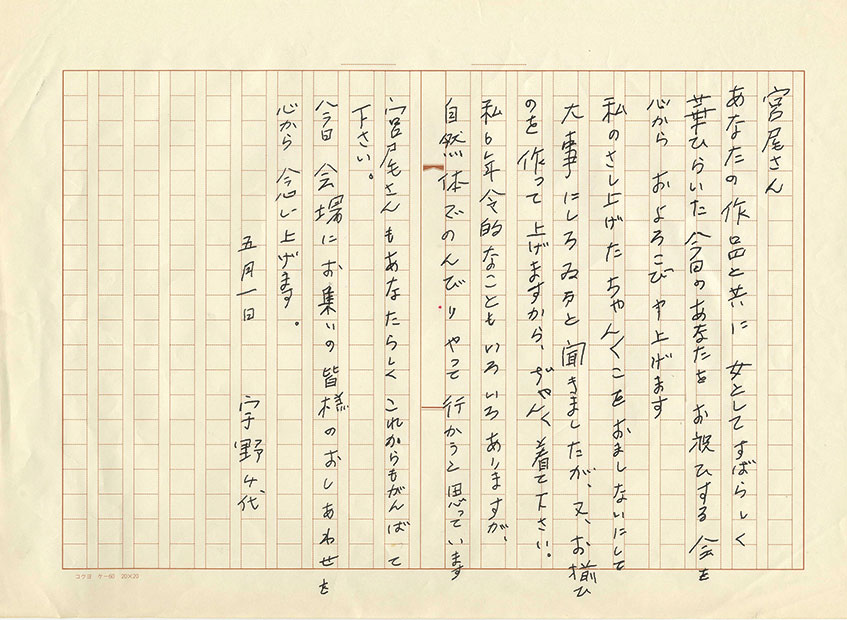 宮尾さん
あなたの作品と共に 女としてすばらしく
華ひらいた今日のあなたを お祝ひする 会を
心から およろこび 申上げます
私のさし上げた ちゃんちゃんこを おましないにして
大事にしろゐると 聞きましたが、又、お揃ひ
のを 作って 上げますから、ぢゃんぢゃん 着て下さい。
私も年令的なことも いろいろ ありますが、
自然体でのんびり やって 行かうと 思っています
宮尾さんもあなたらしく これからもがんばって
下さい。
今日 会場にお集いの皆様の おしあわせを
心から 念じ上げます。
五月一日
宇野千代
コクヨ ケー60 20×20